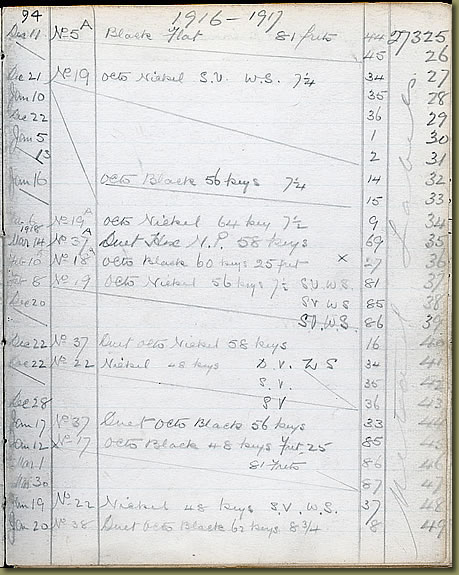 94 1916-1917
Dec 11 No 5 A Black Flat 81 frets 44 27325
45 26
Dec 21 No 19 octo Nickel S.V. W.S. 7¼ 34 27
Jan 10 35 28
Dec 22 36 29
Jan 5 1 30
13 2 31
Jan 16 octo Black 56 keys 7¼ 14 32
15 33
No 19 A octo Nickel 64 key 7½ 9 34
1918
Mar 14 No 37 A Duet N.P. 58 keys 69 35
No 18 octo Black 60 keys 25 fret x 27 36
8 No 19 octo Nickel 56 keys 7½ S.V. W.S. 81 37
Dec 20 SV WS 85 38
S.V. W.S. 86 39
Dec 22 No 37 Duet octo Nickel 58 keys 16 40
Dec 22 No 22 Nickel 48 keys S.V. WS 34 41
S.V. 35 42
Dec 28 SV 36 43
Jan 17 No 37 Duet octo Black 56 keys 33 44
Jan 12 No 17 octo Black 48 keys fret 25 85 45
Mar 1 81 frets 86 46
Mar 30 87 47
Jan 19 No 22 Nickel 48 keys S.V. W.S. 37 48
Jan 20 No 38 Duet octo Black 62 keys 8¾ 18 49